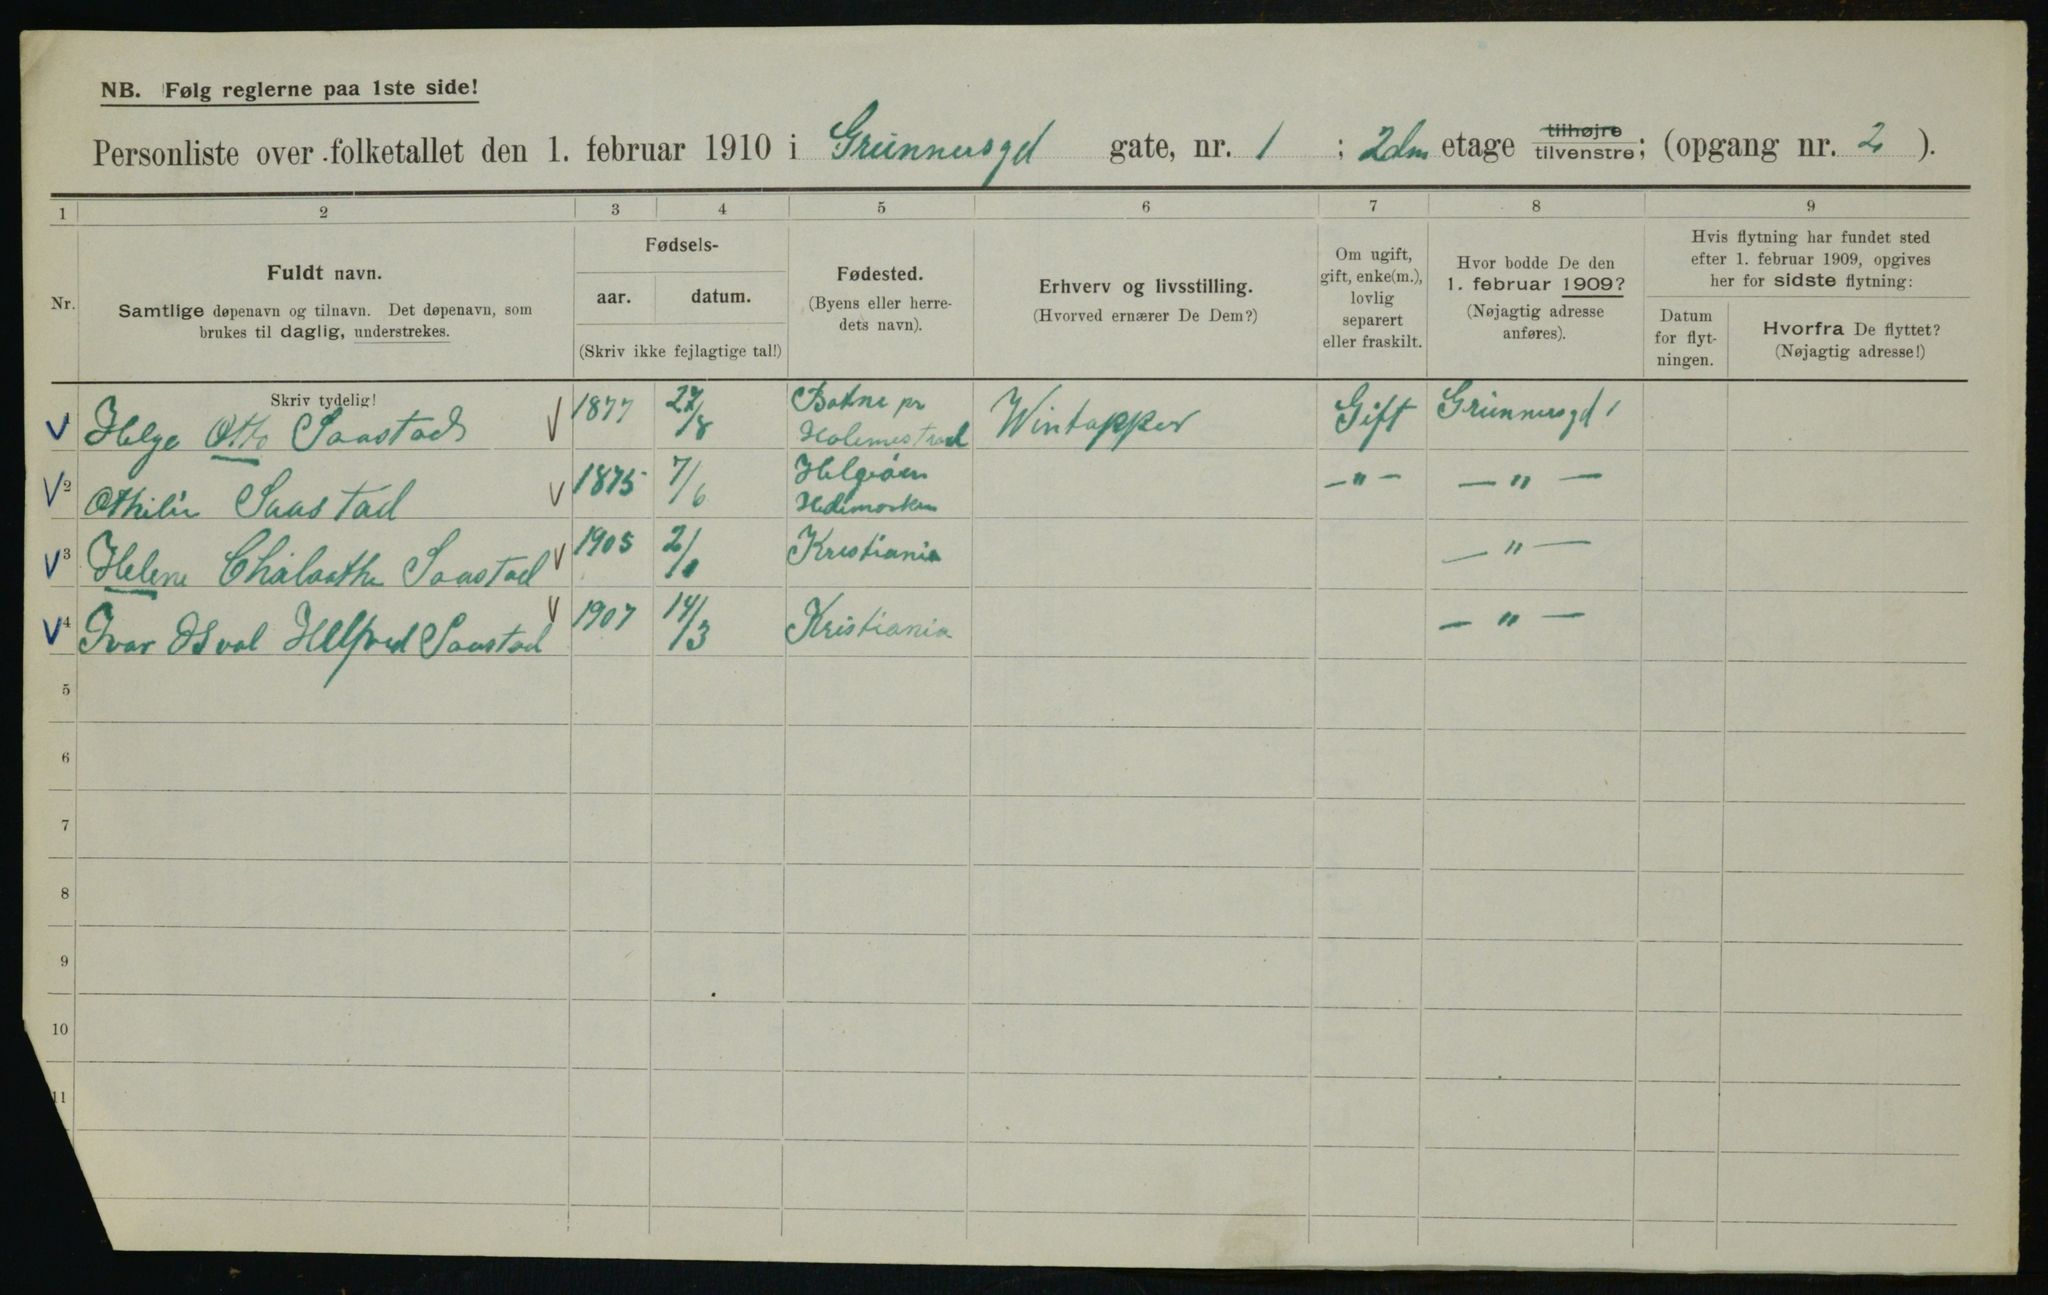 NB. Følg reglerne paa 1ste side!
Personliste over folketallet den 1. februar 1910 i Grünnersgd gate, nr. 1 ; 2den etage tilhøjre tilvenstre; (opgang nr. 2 ).
1 2 3 4 5 6 7 8 9
Nr.
Fuldt navn.
Samtlige døpenavn og tilnavn. Det døpenavn, som
brukes til daglig, understrekes.
Skriv tydelig!
Fødsels-
aar. datum.
(Skriv ikke fejlagtige tal!)
Fødested.
(Byens eller herre-
dets navn).
Erhverv og livsstilling.
(Hvorved ernærer De Dem?)
Om ugift,
gift, enke(m.),
lovlig
separert
eller fraskilt.
Hvor bodde De den
1. februar 1909?
(Nøjagtig adresse
anføres).
Hvis flytning har fundet sted
efter 1. februar 1909, opgives
her for sidste flytning:
Datum
for flyt-
ningen.
Hvorfra De flyttet?
(Nøjagtig adresse!)
Helge Otto Saastad 1877 27/8 Botne pr Holmestrand Wintapper Gift Grünnersgd 1
2 Othilie Saastad 1875 7/6 Helgøen Hedemarken – " – – " –
3 Helene Saastad 1905 2/1 Kristiania – " –
4 Ivar Saastad 1907 14/3 Kristiania – " –
5
6
7
8
9
10
11